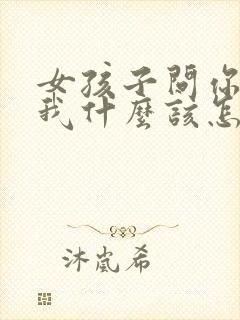 女孩子問你
我什麼該怎
沐嵐希